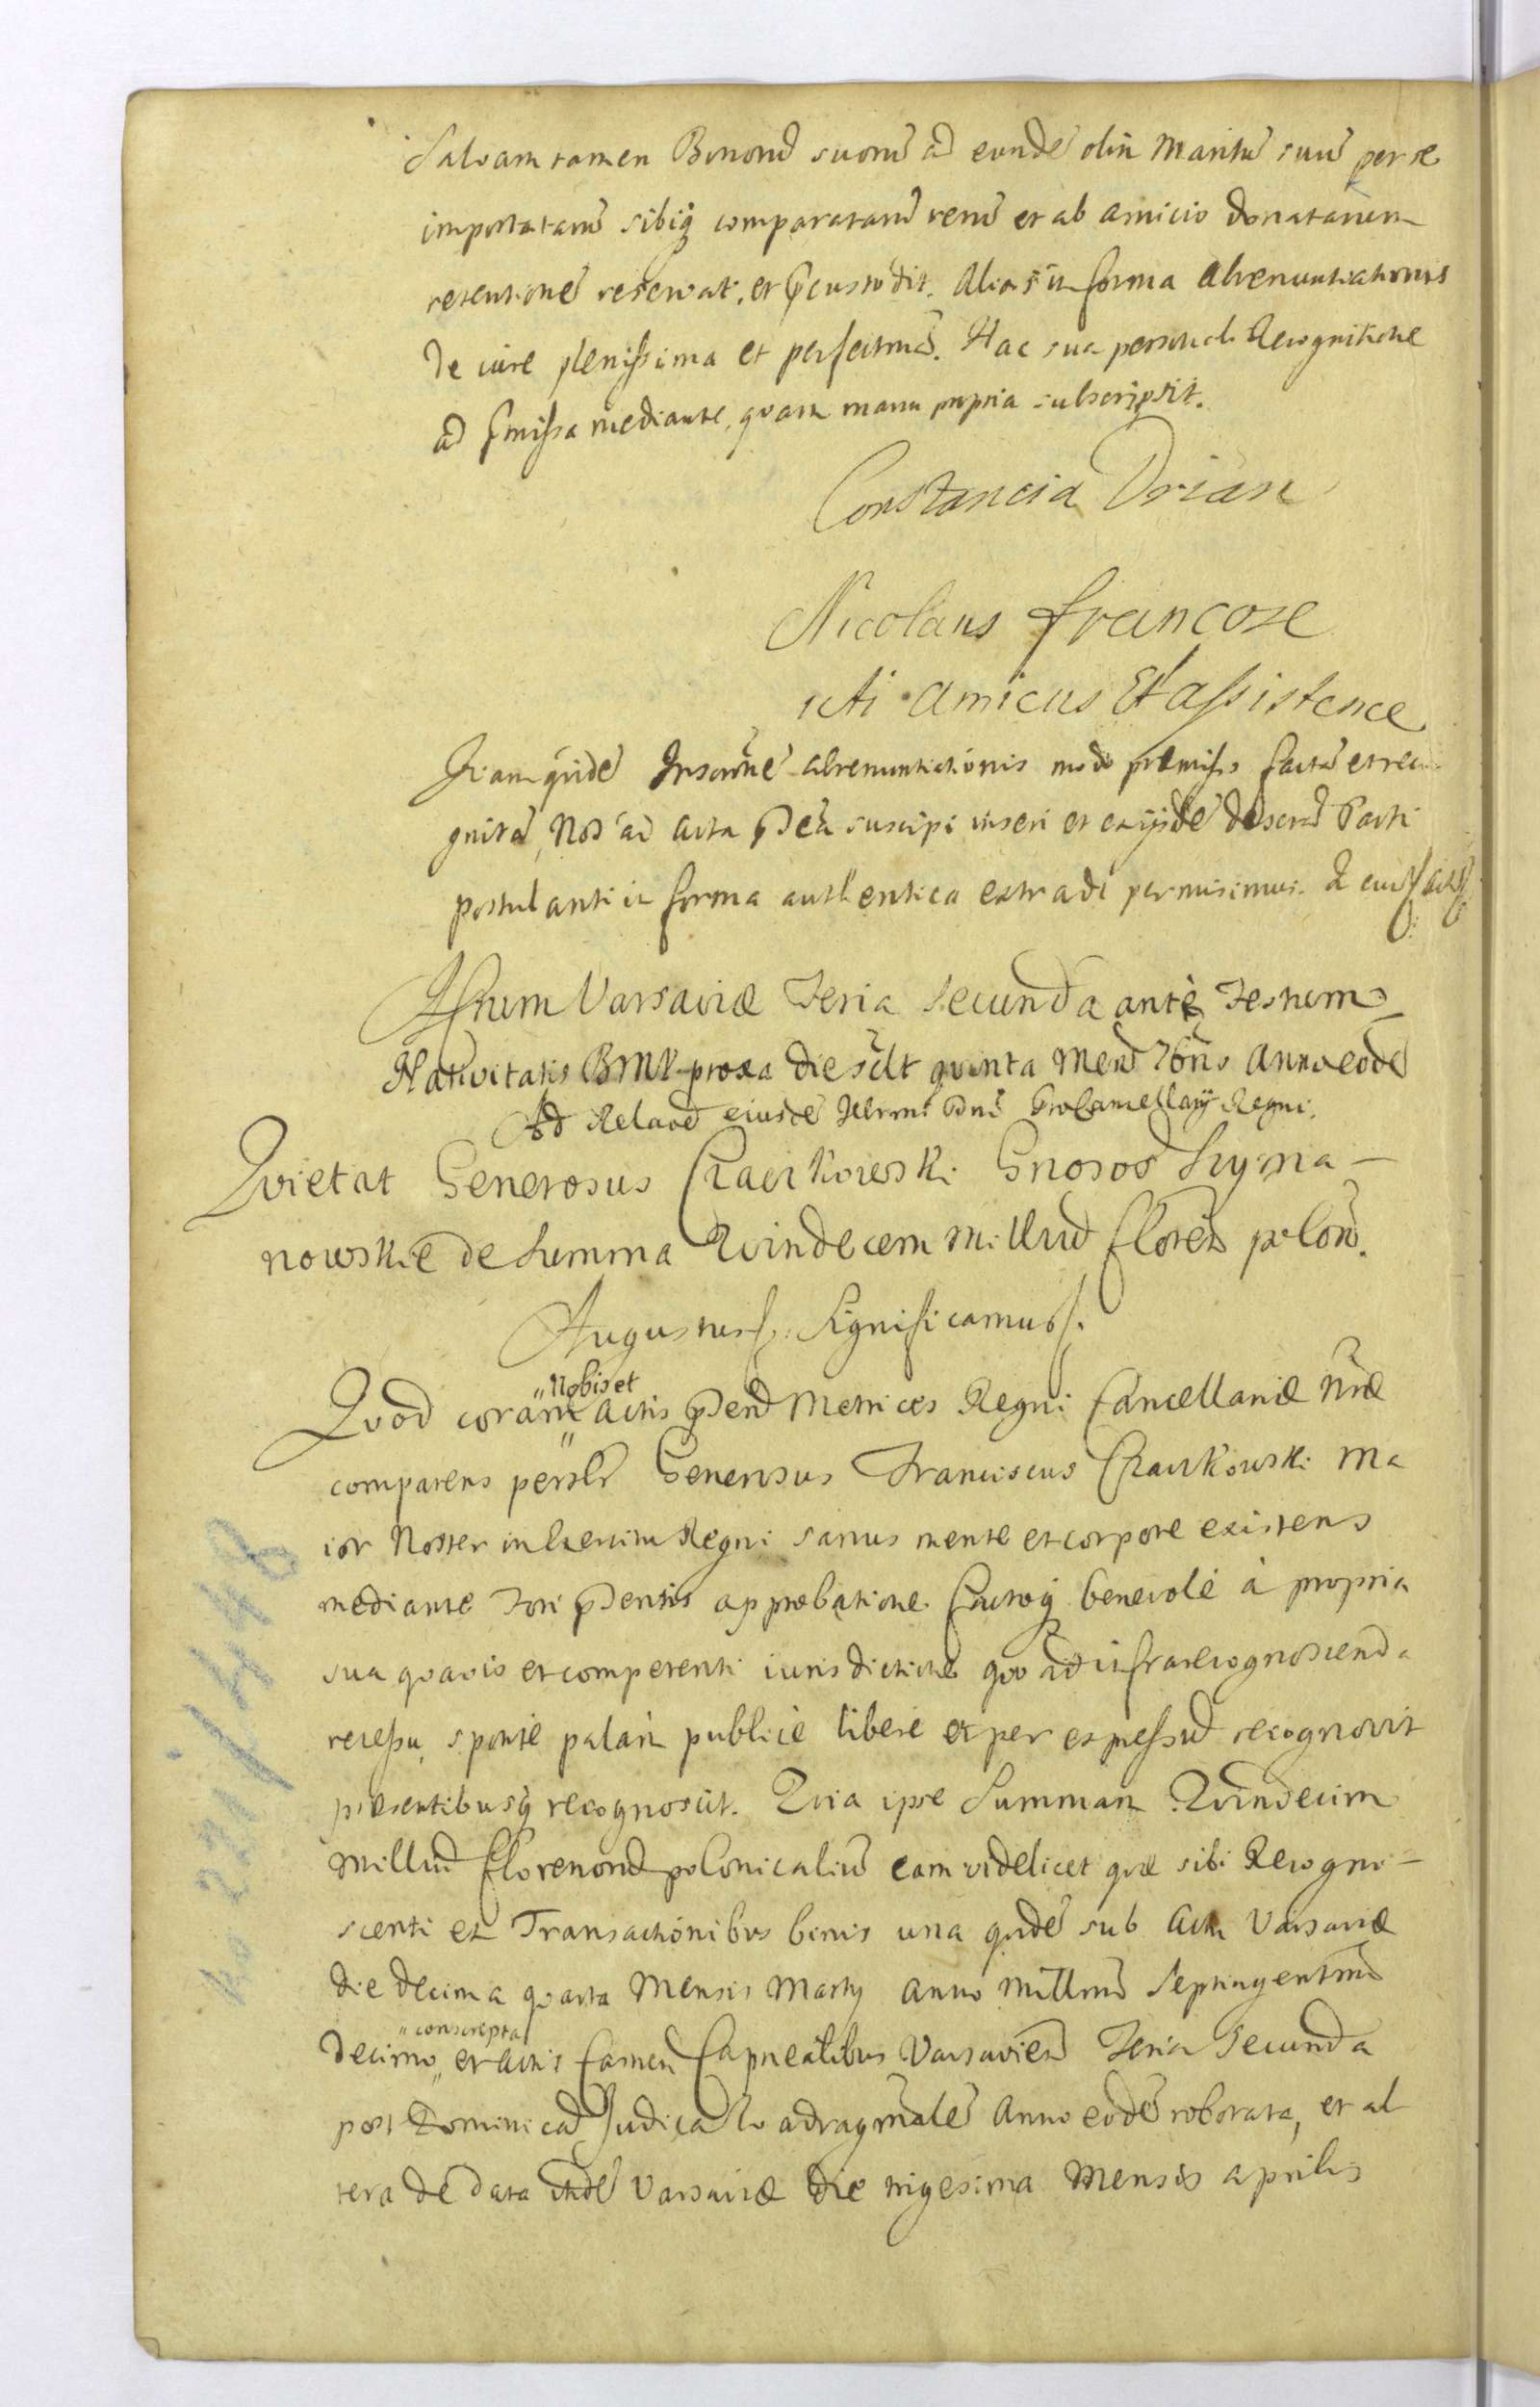 Salvam tamen Bonorũ suorũ ad eundẽ olim Maritũ suũ per se
importatarũ sibiq́ comparatarũ rerũ et ab amicis donatarum
retentionẽ reservat, et p̃custodit. Alias in forma abrenuntiationis
de iure plenissima et perfectissima. Hac sua personali Recognitione
ad p̃missa mediante, quam manu propria subscripsit.
Constancia Drian
Nicolaus francoze
uti amicus Et assistence
quidẽ abrenuntiationis modo præmisso factã et reco
gnitã, Nos ad Acta p̃ntia suscipi inseri et ex ijsdẽ Parti
postulanti in forma authentica extradi permisimus. In cuius
Actum Varsaviæ Feria Secunda ante Festum
Nativitatis BMV proxa die sclt quinta Mens 7bris Anno eodẽ
Ad Relaõẽ eiusdẽ Illrmi Dni ProCancellarij Regni.
Quietat Generosus Czaykowski Gnosos Szyma-
nowskie de Summa Quindecem Millium floren polon.
Augustus. Significamus.
Quod coram "Nobis et" Actis p̃nt Metrices Regni Cancellariæ Nræ
comparens persoñlr Generosus Franciscus Czaykowski Ma
ior Noster in Exercitu Regni sanus mente et corpore existens
mediante Fori p̃sentis approbatione factoq́ benevolè à propria
sua quavis et competenti iurisdictione quo ad infra recognoscenda
recessu, sponte palam publicè liberè et per expressũ recognovit
præsentibusq́ recognoscit. Quia ipse Summam Quindecim
Millium florenorũ polonicaliũ eam videlicet quæ sibi Recogno-
scenti ex Transactionibus binis una quidẽ sub Actu Varsaviæ
die decima quarta Mensis Martij Anno Millmo Septingentmo
decimo "conscripta" et Actis Castren Capnealibus Varsavien Feria Secunda
post Dominicã Judica quadragesimalẽ Anno eodẽ roborata, et al
tera de data Varsaviæ die trigesima Mensis aprilis